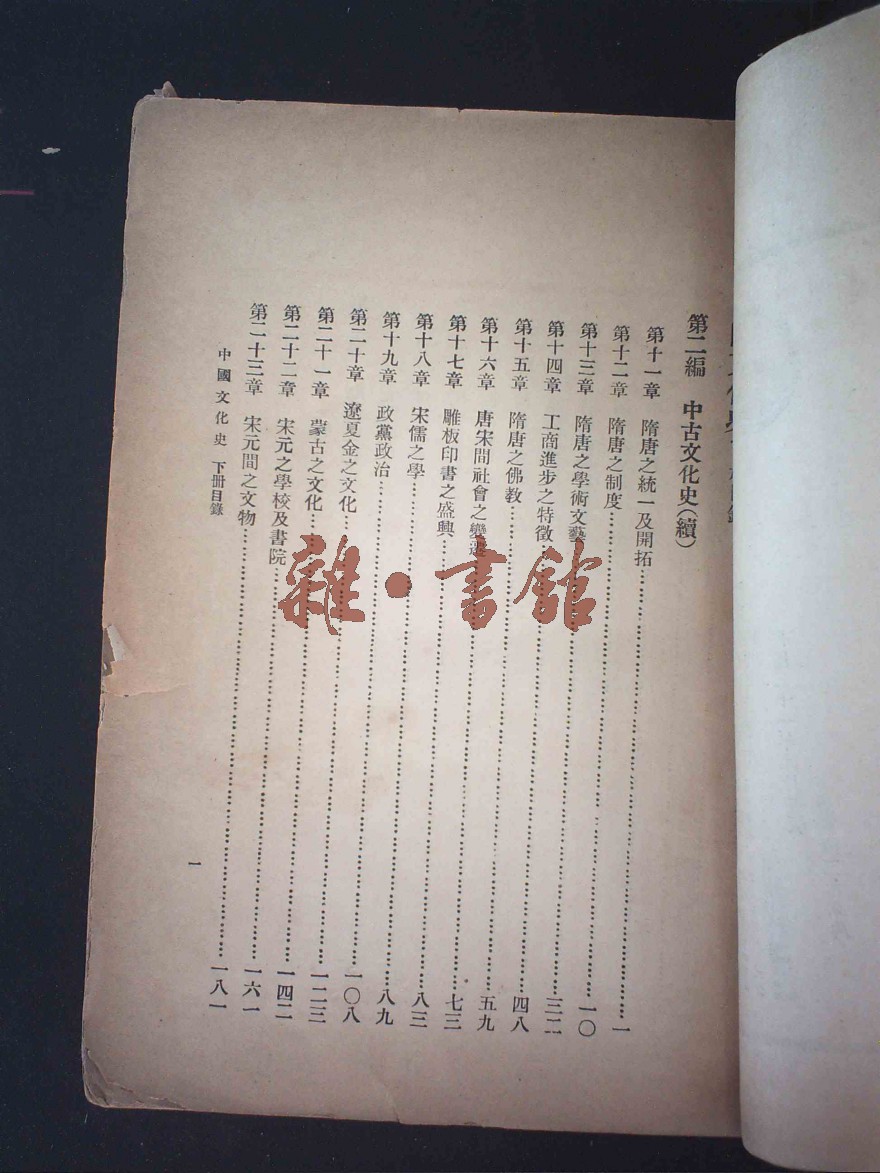 第二編　中古文化史（續）
第十一章　隋唐之統一及開拓……一
第十二章　隋唐之制度……一〇
第十三章　隋唐之學術文藝……三二
第十四章　工商進步之特徵……四八
第十五章　隋唐之佛教……五九
第十六章　唐宋間社會之變遷……七三
第十七章　雕板印書之盛興……八三
第十八章　宋儒之學……八九
第十九章　政黨政治……一〇八
第二十章　遼夏金之文化……一二三
第二十一章　蒙古之文化……一四二
第二十二章　宋元之學校及書院……一六一
第二十三章　宋元間之文物……一八一
中國文化史　下册目錄
一
雜·書館